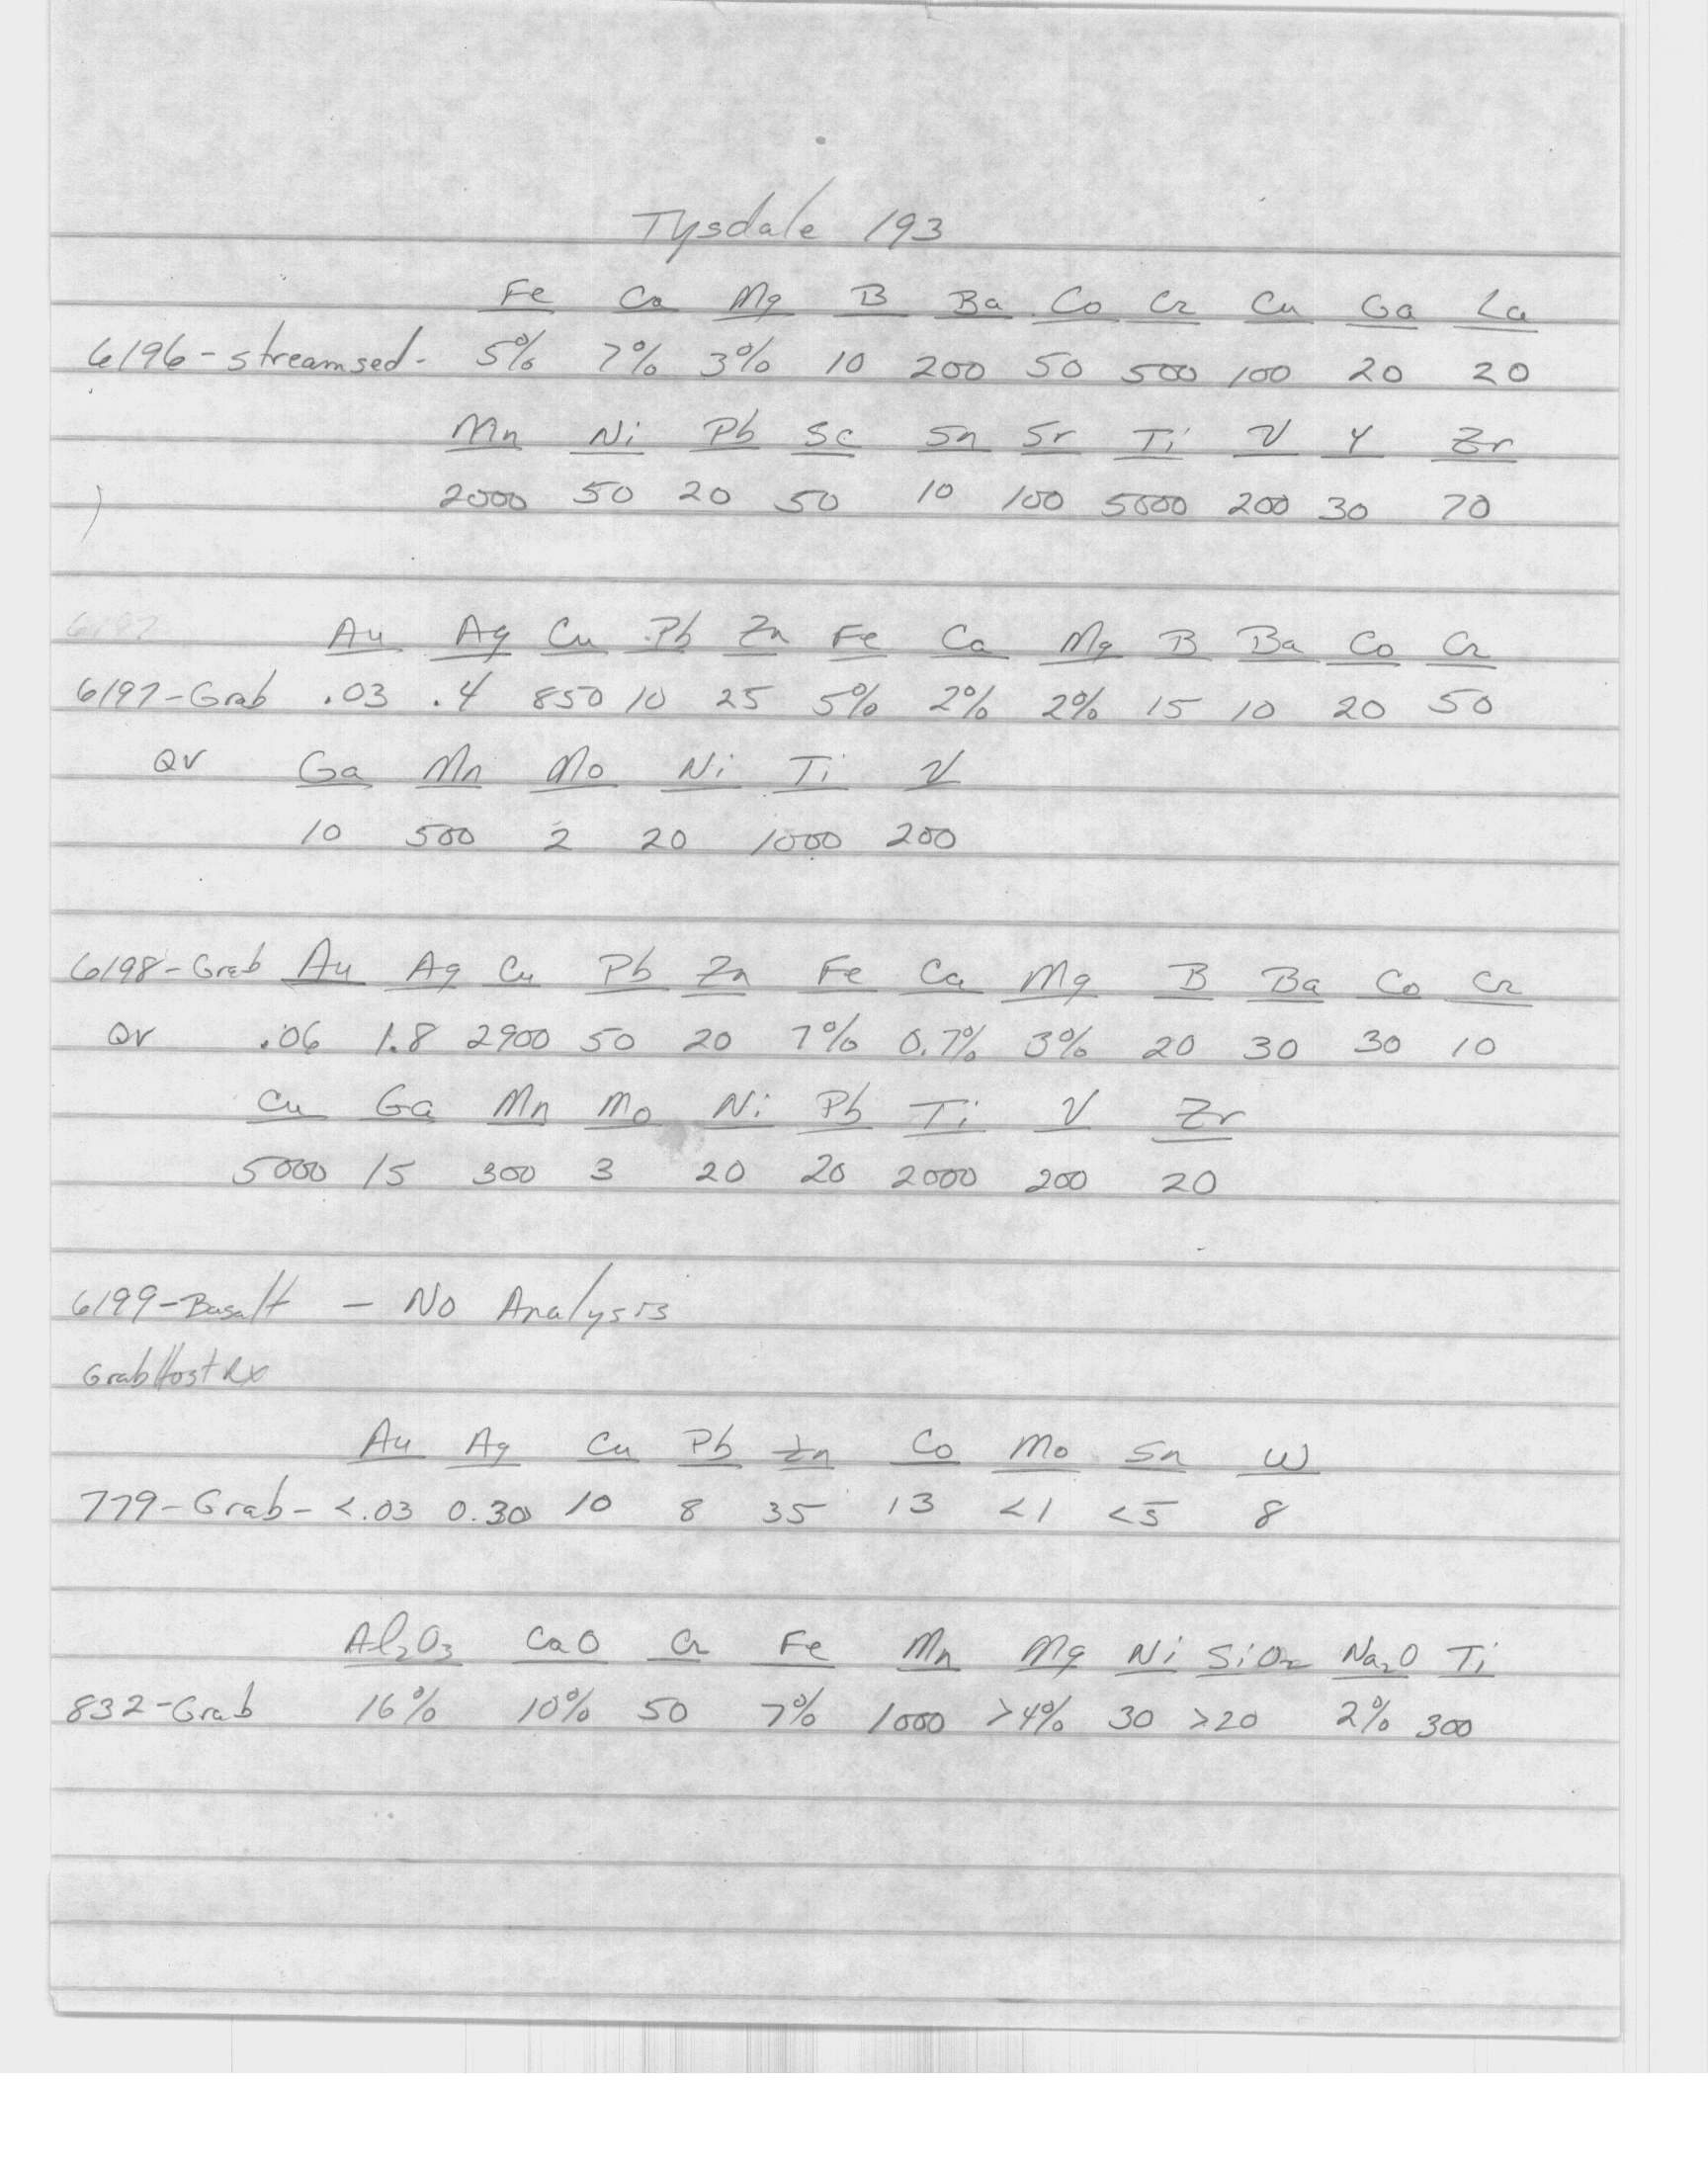 Tysdale 193
Fe Ca Mg B Ba Co Cr Cu Ga La
6196-streamsed- 5% 7% 3% 10 200 50 500 100 20 20
Mn Ni Pb Sc Sn Sr Ti V Y Zr
2000 50 20 50 10 100 5000 200 30 70
Au Ag Cu Pb Zn Fe Ca Mg B Ba Co Cr
6197-Grab .03 .4 850 10 25 5% 2% 2% 15 10 20 50
QV Ga Mn Mo Ni Ti V
10 500 2 20 1000 200
6198-Grab Au Ag Cu Pb Zn Fe Ca Mg B Ba Co Cr
QV .06 1.8 2900 50 20 7% 0.7% 3% 20 30 30 10
Cu Ga Mn Mo Ni Pb Ti V Zr
5000 15 300 3 20 20 2000 200 20
6199-Basalt - No Analysis
Grab Host Rx
Au Ag Cu Pb Zn Co Mo Sn W
779-Grab- <.03 0.30 10 8 35 13 <1 <5 8
Al2O3 CaO Cr Fe Mn Mg Ni SiO2 Na2O Ti
832-Grab 16% 10% 50 7% 1000 >4% 30 >20 2% 300